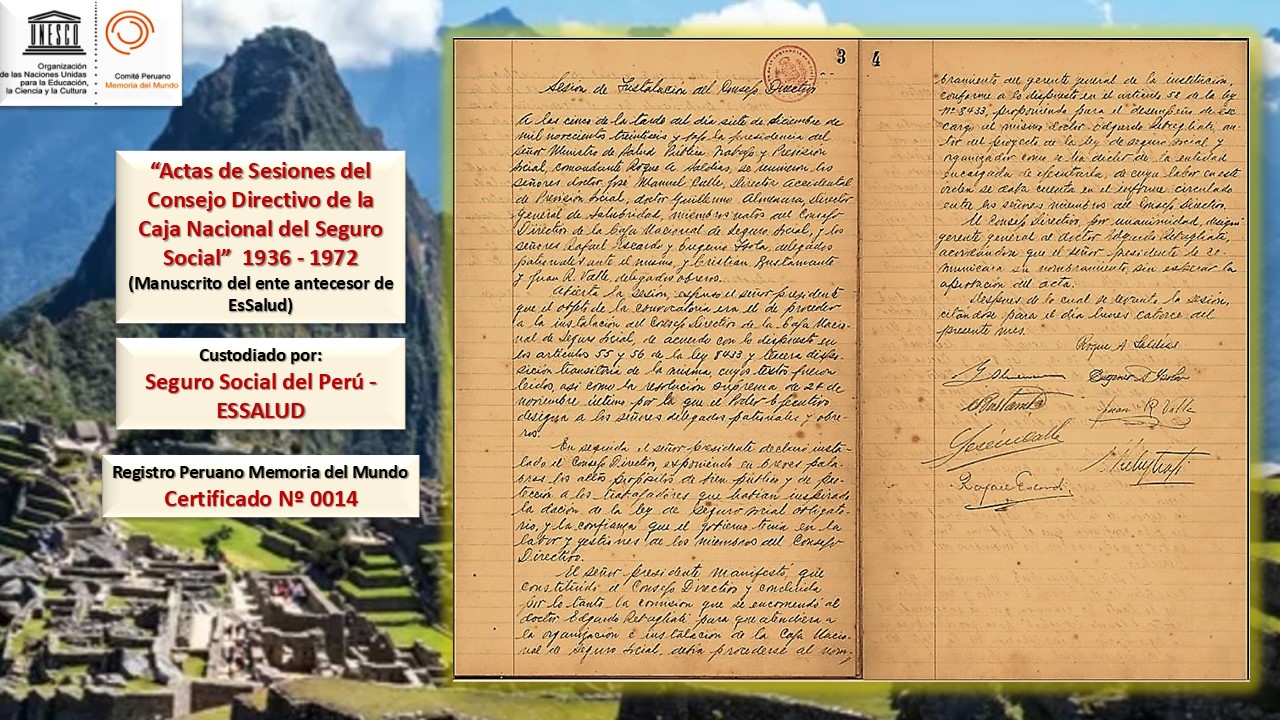 UNESCO
Organización
de las Naciones Unidas
para la Educación,
la Ciencia y la Cultura
Comité Peruano
Memoria del Mundo
“Actas de Sesiones del
Consejo Directivo de la
Caja Nacional del Seguro
Social” 1936 - 1972
(Manuscrito del ente antecesor de
EsSalud)
Custodiado por:
Seguro Social del Perú -
ESSALUD
Registro Peruano Memoria del Mundo
Certificado Nº 0014
3
Sesión de Instalación del Consejo Directivo
A las cinco de la tarde del día siete de diciembre de
mil novecientos treintiseis y bajo la presidencia del
señor Ministro de Salud Pública, Trabajo y Previsión
Social, comandante Roque A. Saldías, se reunieron los
señores doctor José Manuel Calle, Director accidental
de Previsión Social, doctor Guillermo Almenara, director
general de Salubridad, miembros natos del Consejo
Directivo de la Caja Nacional de Seguro Social, y los
señores Rafael Escardó y Eugenio Isola, delegados
patronales ante el mismo, y Cristian Bustamante
y Juan R. Valle, delegados obreros.
Abierta la sesión, expuso el señor presidente
que el objeto de la convocatoria era el de proceder
a la instalación del Consejo Directivo de la Caja Nacio-
nal de Seguro Social, de acuerdo con lo dispuesto en
los artículos 55 y 56 de la ley 8433 y tercera dispo-
sición transitoria de la misma cuyos textos fueron
leídos, así como la resolución suprema de 24 de
noviembre último por la que el Poder Ejecutivo
designa a los señores delegados patronales y obre-
ros.
En seguida el señor presidente declaró insta-
lado el Consejo Directivo, exponiendo en breves pala-
bras los altos propósitos de bien público y de pro-
tección a los trabajadores que habían inspirado
la dación de la ley de seguro social obligato-
rio, y la confianza que el gobierno tenía en la
labor y gestiones de los miembros del Consejo
Directivo.
El señor presidente manifestó que
constituido el Consejo Directivo y concluida
por lo tanto la comisión que se encomendó al
doctor Edgardo Rebagliati para que atendiera a
la organización e instalación de la Caja Nacio-
nal de Seguro Social, debía procederse al nom-
4
bramiento del gerente general de la institución,
conforme a lo dispuesto en el artículo 58 de la ley
Nº 8433, proponiendo para el desempeño de ese
cargo al mismo doctor Edgardo Rebagliati, au-
tor del proyecto de la ley de seguro social y
organizador como se ha dicho de la entidad
encargada de ejecutarla, de cuya labor en este
orden se daba cuenta en el informe circulado
entre los señores miembros del Consejo Directivo.
El Consejo Directivo, por unanimidad, designó
gerente general al doctor Edgardo Rebagliati,
acordándose que el señor presidente le co-
municara su nombramiento, sin esperar la
aprobación del acta.
Después de lo cual se levantó la sesión,
citándose para el día lunes catorce del
presente mes.
Roque A. Saldías
Juan R. Valle
Rafael Escardó